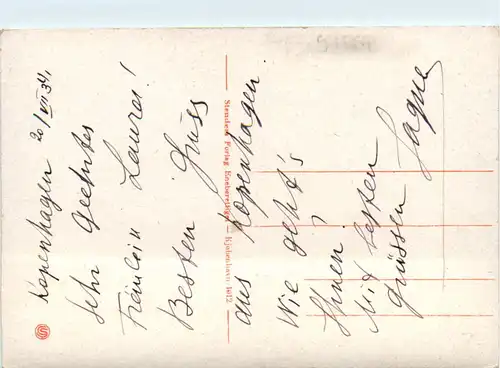 Kopenhagen 20/VII 34.
Sehr Geehrtes
Fräulein Laures!
Besten Gruss
aus Kopenhagen.
Wie geht's
Ihnen?
Mit besten
grüssen
Stenders Forlag Eneberettiget — Kjøbenhavn 1612